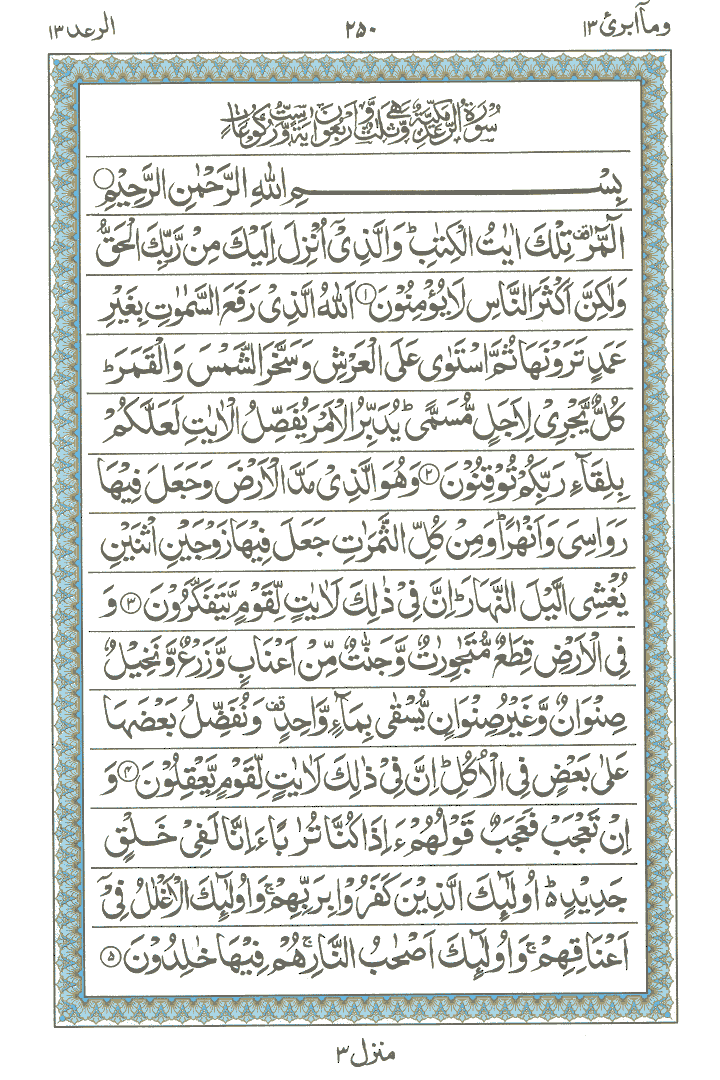 وماأبرئ ١٣
٢٥٠
الرعد ١٣
سُوْرَةُ الرَّعْدِ مَكِّيَّةٌ وَّهِیَ ثَلٰثٌ وَّاَرْبَعُوْنَ اٰیَةً وَّسِتُّ رُكُوْعَاتٍ
بِسْمِ اللهِ الرَّحْمٰنِ الرَّحِیْمِ
الٓمّٓرٰ تف تِلْكَ اٰیٰتُ الْكِتٰبِ ؕ وَالَّذِیْۤ اُنْزِلَ اِلَیْكَ مِنْ رَّبِّكَ الْحَقُّ
وَلٰكِنَّ اَكْثَرَ النَّاسِ لَا یُؤْمِنُوْنَ ۝١ اَللهُ الَّذِیْ رَفَعَ السَّمٰوٰتِ بِغَیْرِ
عَمَدٍ تَرَوْنَهَا ثُمَّ اسْتَوٰی عَلَی الْعَرْشِ وَسَخَّرَ الشَّمْسَ وَالْقَمَرَ ؕ
كُلٌّ یَّجْرِیْ لِاَجَلٍ مُّسَمًّی ؕ یُدَبِّرُ الْاَمْرَ یُفَصِّلُ الْاٰیٰتِ لَعَلَّكُمْ
بِلِقَآءِ رَبِّكُمْ تُوْقِنُوْنَ ۝٢ وَهُوَ الَّذِیْ مَدَّ الْاَرْضَ وَجَعَلَ فِیْهَا
رَوَاسِیَ وَاَنْهٰرًا ؕ وَمِنْ كُلِّ الثَّمَرٰتِ جَعَلَ فِیْهَا زَوْجَیْنِ اثْنَیْنِ
یُغْشِی الَّیْلَ النَّهَارَ ؕ اِنَّ فِیْ ذٰلِكَ لَاٰیٰتٍ لِّقَوْمٍ یَّتَفَكَّرُوْنَ ۝٣ وَ
فِی الْاَرْضِ قِطَعٌ مُّتَجٰوِرٰتٌ وَّجَنّٰتٌ مِّنْ اَعْنَابٍ وَّزَرْعٌ وَّنَخِیْلٌ
صِنْوَانٌ وَّغَیْرُ صِنْوَانٍ یُّسْقٰی بِمَآءٍ وَّاحِدٍ قف وَنُفَضِّلُ بَعْضَهَا
عَلٰی بَعْضٍ فِی الْاُكُلِ ؕ اِنَّ فِیْ ذٰلِكَ لَاٰیٰتٍ لِّقَوْمٍ یَّعْقِلُوْنَ ۝٤ وَ
اِنْ تَعْجَبْ فَعَجَبٌ قَوْلُهُمْ ءَاِذَا كُنَّا تُرٰبًا ءَاِنَّا لَفِیْ خَلْقٍ
جَدِیْدٍ ؕ اُولٰٓئِكَ الَّذِیْنَ كَفَرُوْا بِرَبِّهِمْ ۚ وَاُولٰٓئِكَ الْاَغْلٰلُ فِیْۤ
اَعْنَاقِهِمْ ۚ وَاُولٰٓئِكَ اَصْحٰبُ النَّارِ ۚ هُمْ فِیْهَا خٰلِدُوْنَ ۝٥
منزل ٣